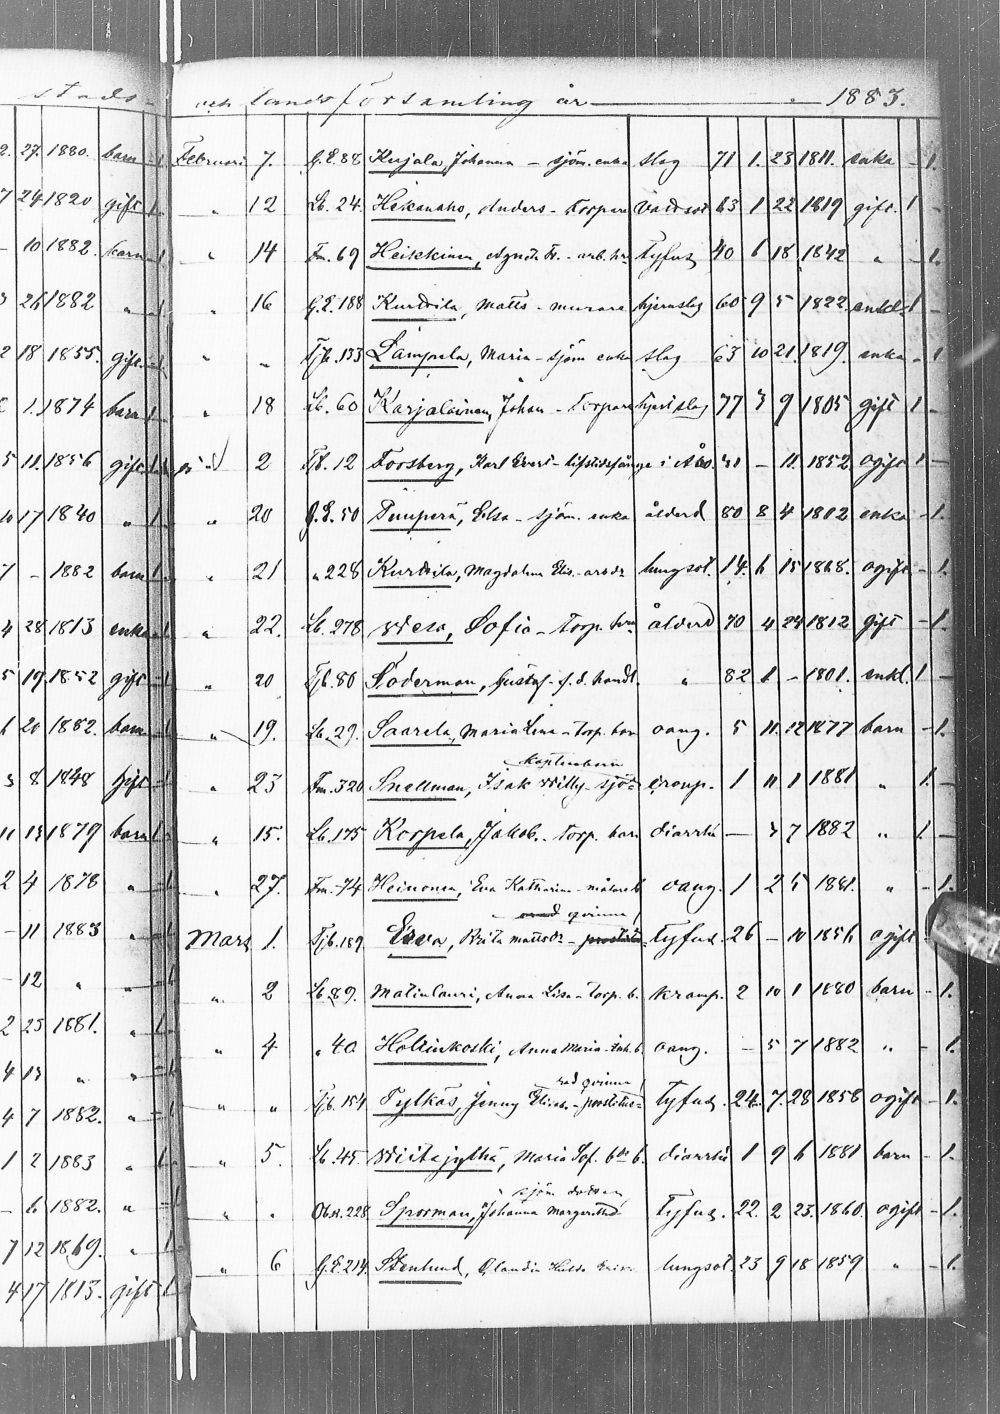 stads-
och landsförsamling år 1883.
2. 27. 1880. barn 1. Februari 7. G.E. 88 Kujala, Johanna - sjöm. enka slag 71 1. 23 1811. enka - 1.
7 24 1820 gift 1. " 12 Lb. 24. Hekanaho, Anders - torpare 63 1 22 1819 gift. 1 -
- 10 1882. barn 1. " 14 Fm. 69 Heikkinen, - arb. hru Tyfus 40 6 18 1842 " - 1.
3 26 1882 " 1. " 16 G.E. 188 Kurvila, Matts - murare hjernslag 60 9 5 1822 enkl. 1 -
2 18 1855. gift 1. " " Tjb. 133 Lampela, Maria - sjöm enka slag 63 10 21 1819. enka - 1.
1. 1874 barn 1. " 18 Lb. 60 Karjalainen, Johan - torpare hjertslag 77 3 9 1805 gift 1 -
5 11. 1856 gift 1. 2 Tjb. 12 Forsberg, Karl Evert - lifstidsfånge i Åbo. 31 - 11. 1852 ogift 1 -
10 17 1840 " 1. " 20 G.E. 50 Timperä, Elsa - sjöm. enka ålderd 80 8 4 1802 enka - 1.
7 - 1882 barn 1. " 21 " 228 Kurvila, Magdalena Elis. - lungsot. 14. 6 15 1868. ogift - 1.
4 28 1813 enka 1. " 22. Lb. 278 Wesa, Sofia - Torp. hru ålderd 70 4 24 1812 gift - 1.
5 19. 1852 gift 1. " 20 Tjb. 80 Söderman, Gustaf - f.d. handl. " 82 1 - 1801. enkl. 1 -
1 20 1882. barn 1. " 19. Lb. 29. Saarela, Maria Lena - torp. barn oang. 5 11. 12 1877 barn - 1.
kaptenbarn
3 8 1848 gift 1. " 23 Fm. 320 Snellman, Isak Willy - croup. 1 11 1 1881 " 1. -
11 13 1879 barn 1. " 15. Lb. 175 Korpela, Jakob. - torp. barn diarrhé - 3 7 1882 " 1. -
2 4 1878 " 1. " 27. Fm. 74 Heinonen, Eva Katharina - oang. 1 2 5 1881. " - 1.
qvinna
- 11 1883 " 1. Mars 1. Tjb. 189 Erva, Brita Mattsdr - Tyfus. 26 - 10 1856 ogift 1.
- 12 " " 1. " 2 Lb. 89. Matinlauri, Anna Lisa - torp. b. kramp. 2 10 1 1880 barn - 1.
2 25 1881. " 1. " 4 " 40 Holiinkoski, Anna Maria - inh. b. oang. - 5 7 1882 " - 1.
qvinna
4 13 " " 1. " " Tjb. 154 Tylkäs, Jenny - Tyfus. 24. 7. 28 1858 ogift - 1.
4 7 1882. " 1. " 5. Lb. 45. Wiitajylhä, Maria Sof. b. diarrhé 1 9 6 1881 barn - 1.
sjöm. dotter
- 6 1882. " 1. " " Ob.N. 228 Sporrman, Johanna Margaretha Tyfus. 22. 2 23. 1860. ogift - 1.
7 12 1869. " 1. " 6 G.E. 214. Stenlund, Hilda lungsot. 23 9 18 1859 " - 1.
4 17 1813. gift 1.